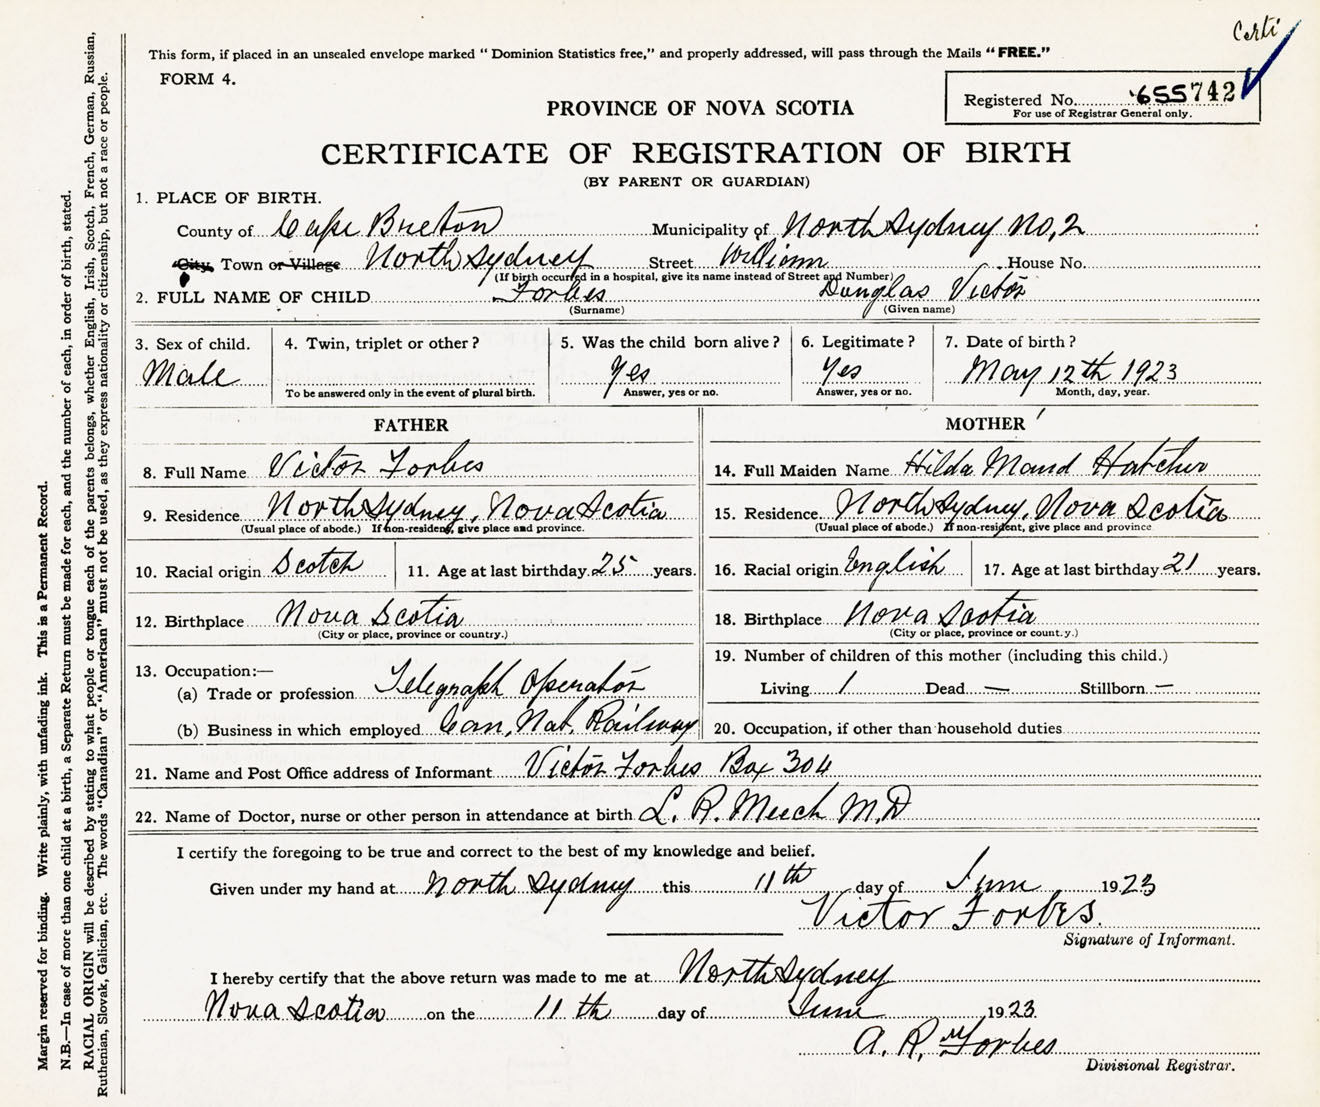 Certi
This form, if placed in an unsealed envelope marked “ Dominion Statistics free,” and properly addressed, will pass through the Mails “ FREE.”
FORM 4.
Registered No. 655742
For use of Registrar General only.
PROVINCE OF NOVA SCOTIA
CERTIFICATE OF REGISTRATION OF BIRTH
(BY PARENT OR GUARDIAN)
1. PLACE OF BIRTH.
County of Cape Breton Municipality of North Sydney No, 2
City, Town or Village North Sydney Street William House No.
(If birth occurred in a hospital, give its name instead of Street and Number)
2. FULL NAME OF CHILD Forbes Dunglas Victor
(Surname) (Given name)
3. Sex of child. 4. Twin, triplet or other ? 5. Was the child born alive ? 6. Legitimate ? 7. Date of birth ?
Male Yes Yes May 12th 1923
To be answered only in the event of plural birth. Answer, yes or no. Answer, yes or no. Month, day, year.
FATHER MOTHER
8. Full Name Victor Forbes 14. Full Maiden Name Hilda Maud Hatcher
9. Residence North Sydney, Nova Scotia 15. Residence. North Sydney, Nova Scotia
(Usual place of abode.) If non-resident, give place and province. (Usual place of abode.) If non-resident, give place and province
10. Racial origin Scotch 11. Age at last birthday 25 years. 16. Racial origin English 17. Age at last birthday 21 years.
12. Birthplace Nova Scotia 18. Birthplace Nova Scotia
(City or place, province or country.) (City or place, province or count.y.)
13. Occupation:— 19. Number of children of this mother (including this child.)
(a) Trade or profession Telegraph Operator Living 1 Dead — Stillborn —
(b) Business in which employed Can, Nat, Railway 20. Occupation, if other than household duties
21. Name and Post Office address of Informant Victor Forbes Box 304
22. Name of Doctor, nurse or other person in attendance at birth L. R. Meech M.D
I certify the foregoing to be true and correct to the best of my knowledge and belief.
Given under my hand at North Sydney this 11th day of June 1923
Victor Forbes.
Signature of Informant.
I hereby certify that the above return was made to me at North Sydney
Nova Scotia on the 11th day of June 1923
A. R. Forbes
Divisional Registrar.
Margin reserved for binding. Write plainly, with unfading ink. This is a Permanent Record.
N.B.—In case of more than one child at a birth, a Separate Return must be made for each, and the number of each, in order of birth, stated.
RACIAL ORIGIN will be described by stating to what people or tongue each of the parents belongs, whether English, Irish, Scotch, French, German, Russian,
Ruthenian, Slovak, Galician, etc. The words “Canadian” or “American” must not be used, as they express nationality or citizenship, but not a race or people.